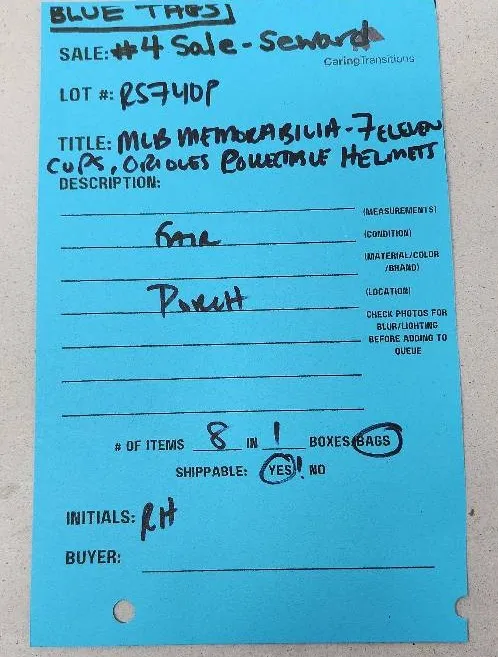 BLUE TAGS
SALE: #4 Sale - Seward
CaringTransitions
LOT #: RS740P
TITLE: MLB MEMORABILIA - 7 ELEVEN
CUPS, ORIOLES COLLECTABLE HELMETS
DESCRIPTION:
(MEASUREMENTS)
FAIR (CONDITION)
(MATERIAL/COLOR
/BRAND)
PORCH (LOCATION)
CHECK PHOTOS FOR
BLUR/LIGHTING
BEFORE ADDING TO
QUEUE
# OF ITEMS 8 IN 1 BOXES/BAGS
SHIPPABLE: YES! NO
INITIALS: RH
BUYER: